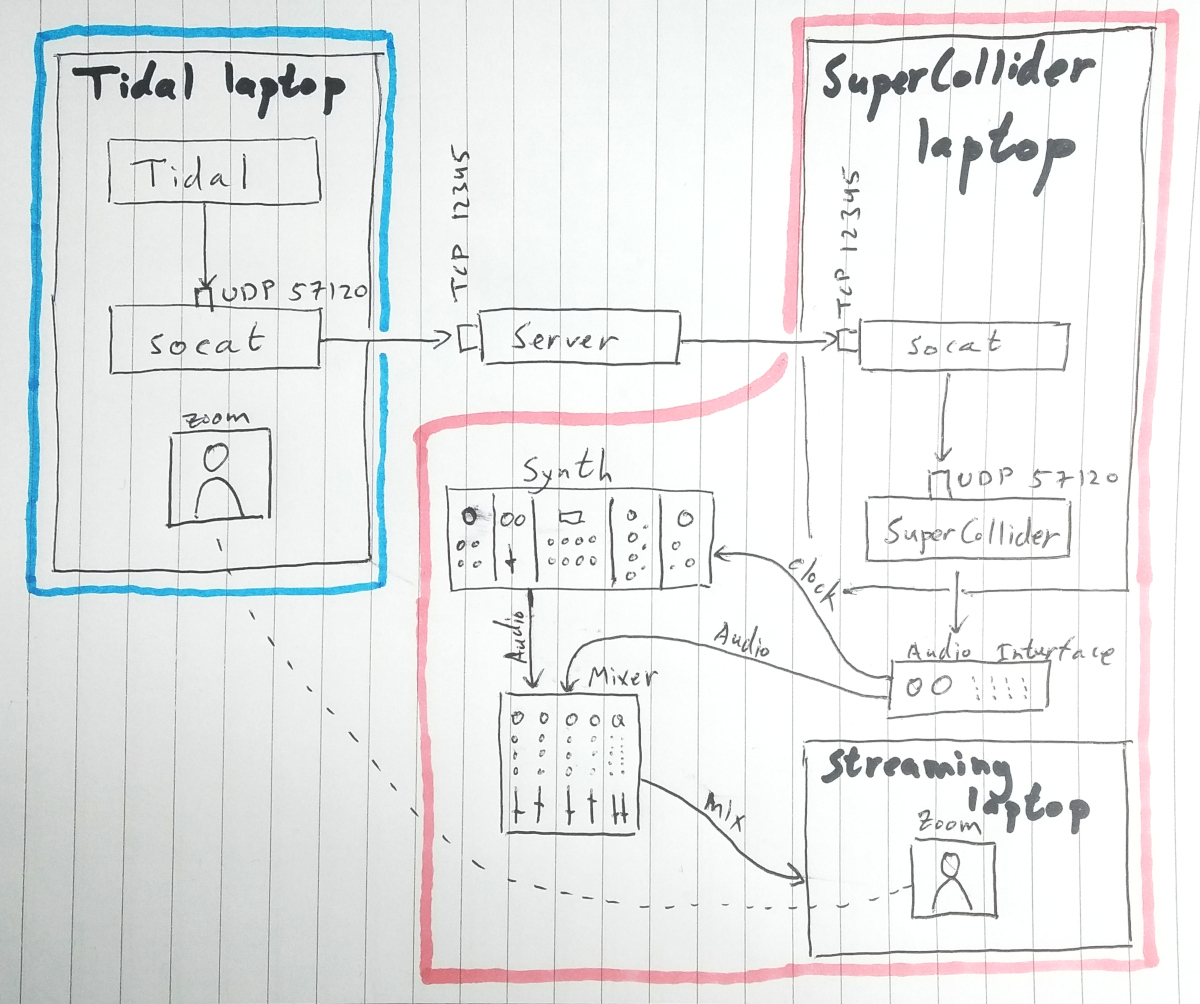 Tidal laptop
Tidal
UDP 57120
socat
zoom
TCP 12345
Server
SuperCollider
laptop
TCP 12345
socat
UDP 57120
SuperCollider
Synth
clock
Audio
Audio
Mixer
Audio Interface
Mix
Streaming
laptop
Zoom